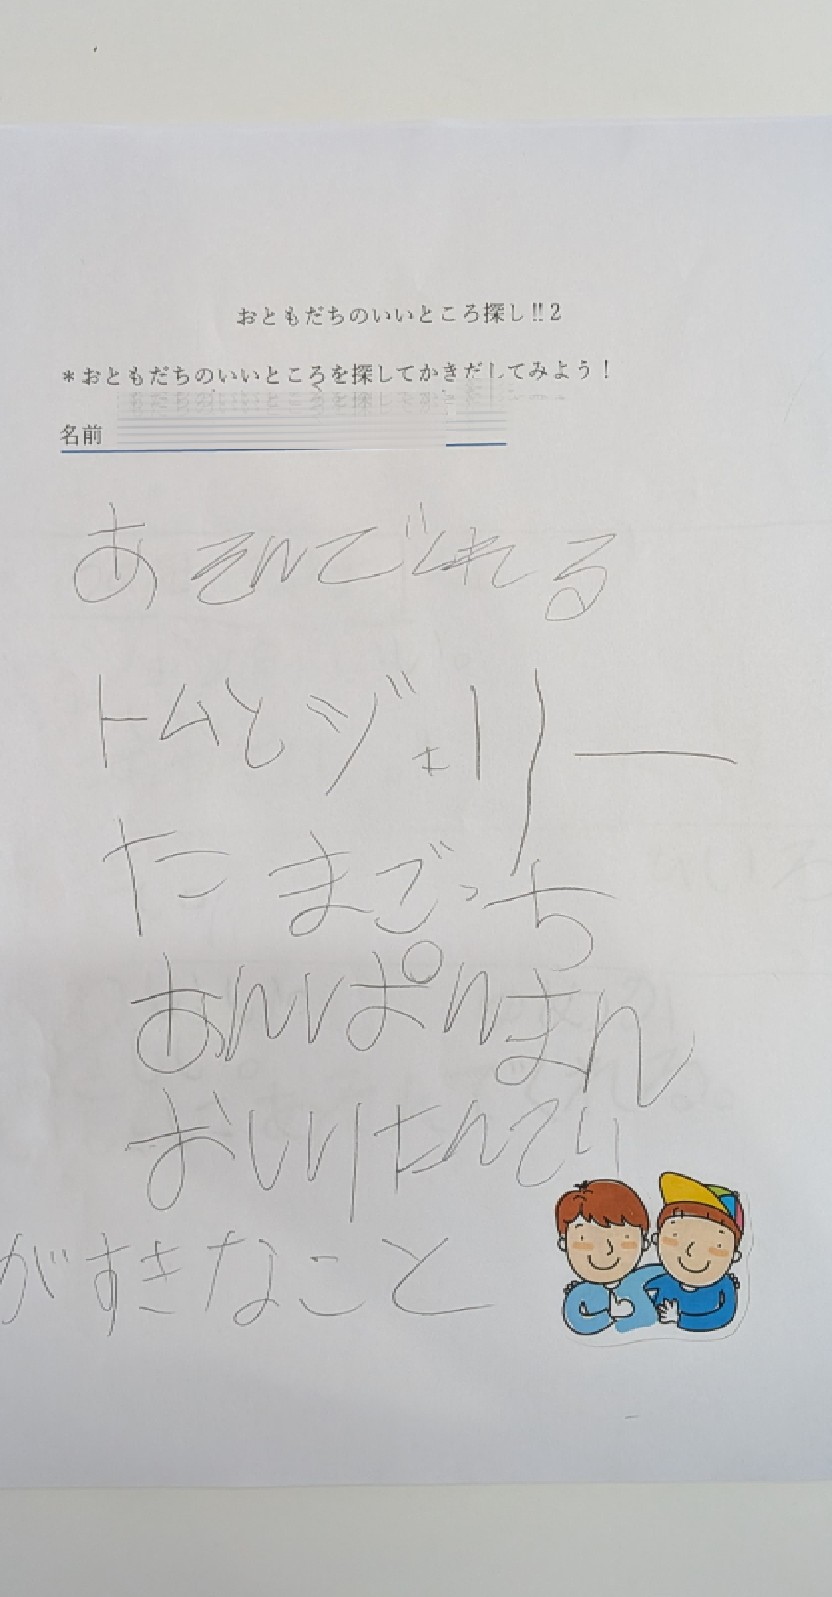 おともだちのいいところ探し!!2
＊おともだちのいいところを探してかきだしてみよう！
名前
あそんでくれる
トムとジェリー
たまごっち
あんぱんまん
おしりたんてい
がすきなこと